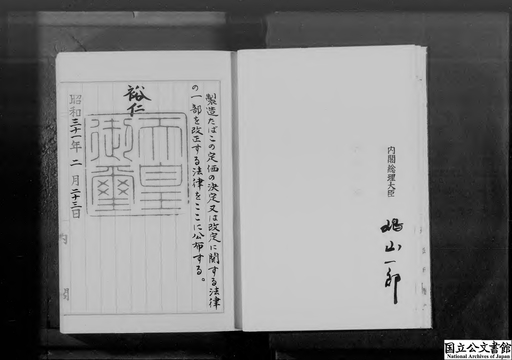 製造たばこの定価の決定又は改定に関する法律
の一部を改正する法律をここに公布する。
裕仁
天皇
御璽
昭和三十一年二月二十三日
内閣
内閣総理大臣
鳩山一郎
国立公文書館
National Archives of Japan